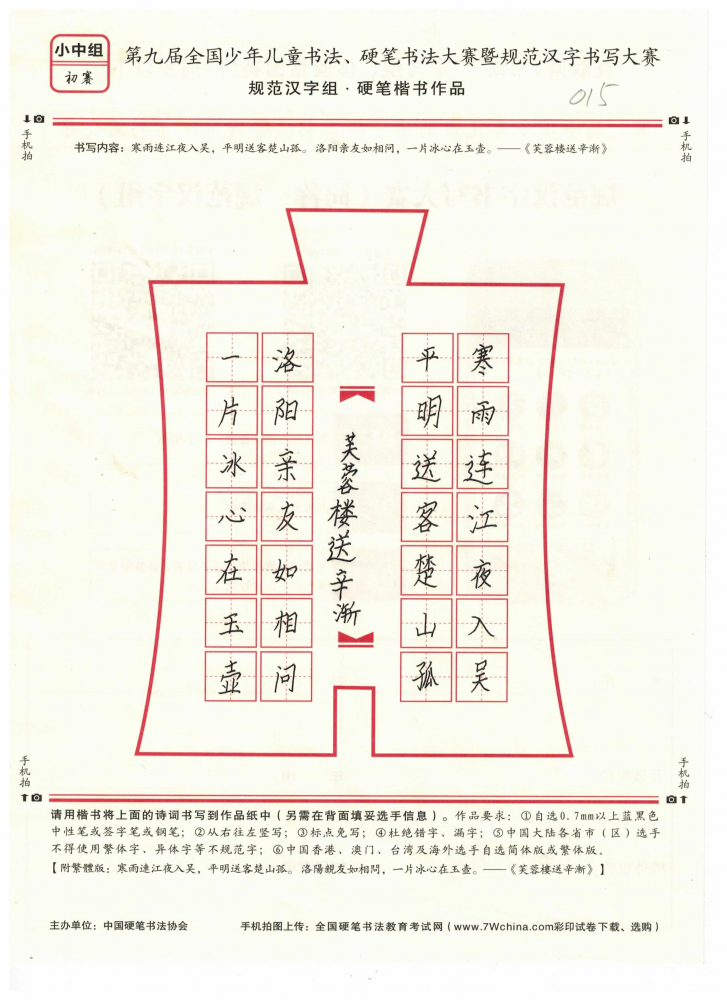 小中组
初赛
第九届全国少年儿童书法、硬笔书法大赛暨规范汉字书写大赛
规范汉字组·硬笔楷书作品
015
手机拍
手机拍
书写内容：寒雨连江夜入吴，平明送客楚山孤。洛阳亲友如相问，一片冰心在玉壶。——《芙蓉楼送辛渐》
寒雨连江夜入吴
平明送客楚山孤
芙蓉楼送辛渐
洛阳亲友如相问
一片冰心在玉壶
手机拍
手机拍
请用楷书将上面的诗词书写到作品纸中（另需在背面填妥选手信息）。作品要求：①自选0.7mm以上蓝黑色
中性笔或签字笔或钢笔；②从右往左竖写；③标点免写；④杜绝错字、漏字；⑤中国大陆各省市（区）选手
不得使用繁体字、异体字等不规范字；⑥中国香港、澳门、台湾及海外选手自选简体版或繁体版。
【附繁體版：寒雨連江夜入吴，平明送客楚山孤。洛陽親友如相問，一片冰心在玉壶。——《芙蓉楼送辛渐》】
主办单位：中国硬笔书法协会
手机拍图上传：全国硬笔书法教育考试网（www.7Wchina.com彩印试卷下载、选购）